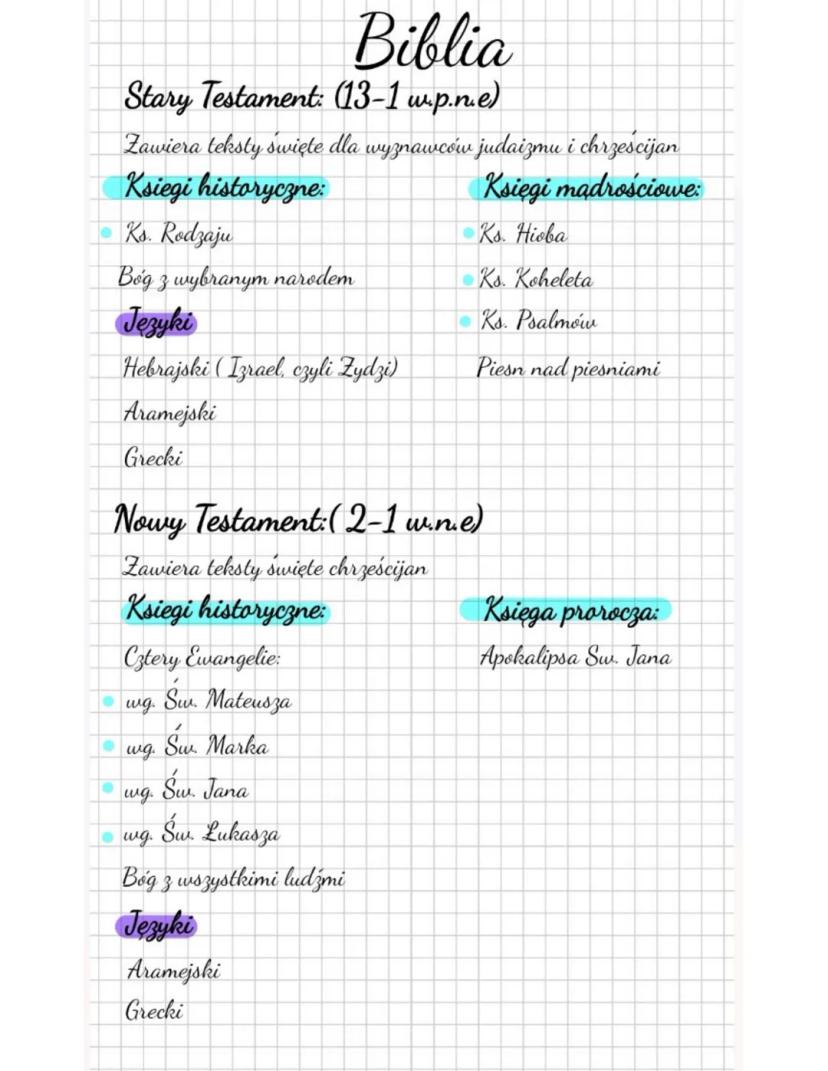 Biblia
Stary Testament: (13-1 w.p.n.e)
Zawiera teksty święte dla wyznawców judaizmu i chrześcijan
Księgi historyczne:
Ks. Rodzaju
Bóg z wybranym narodem
Języki
Hebrajski ( Izrael, czyli Żydzi)
Aramejski
Grecki
Księgi mądrościowe:
Ks. Hioba
Ks. Koheleta
Ks. Psalmów
Piesn nad piesniami
Nowy Testament:( 2-1 w.n.e)
Zawiera teksty święte chrześcijan
Księgi historyczne:
Cztery Ewangelie:
wg. Św. Mateusza
wg. Św. Marka
wg. Św. Jana
wg. Św. Łukasza
Bóg z wszystkimi ludźmi
Języki
Aramejski
Grecki
Księga prorocza:
Apokalipsa Sw. Jana